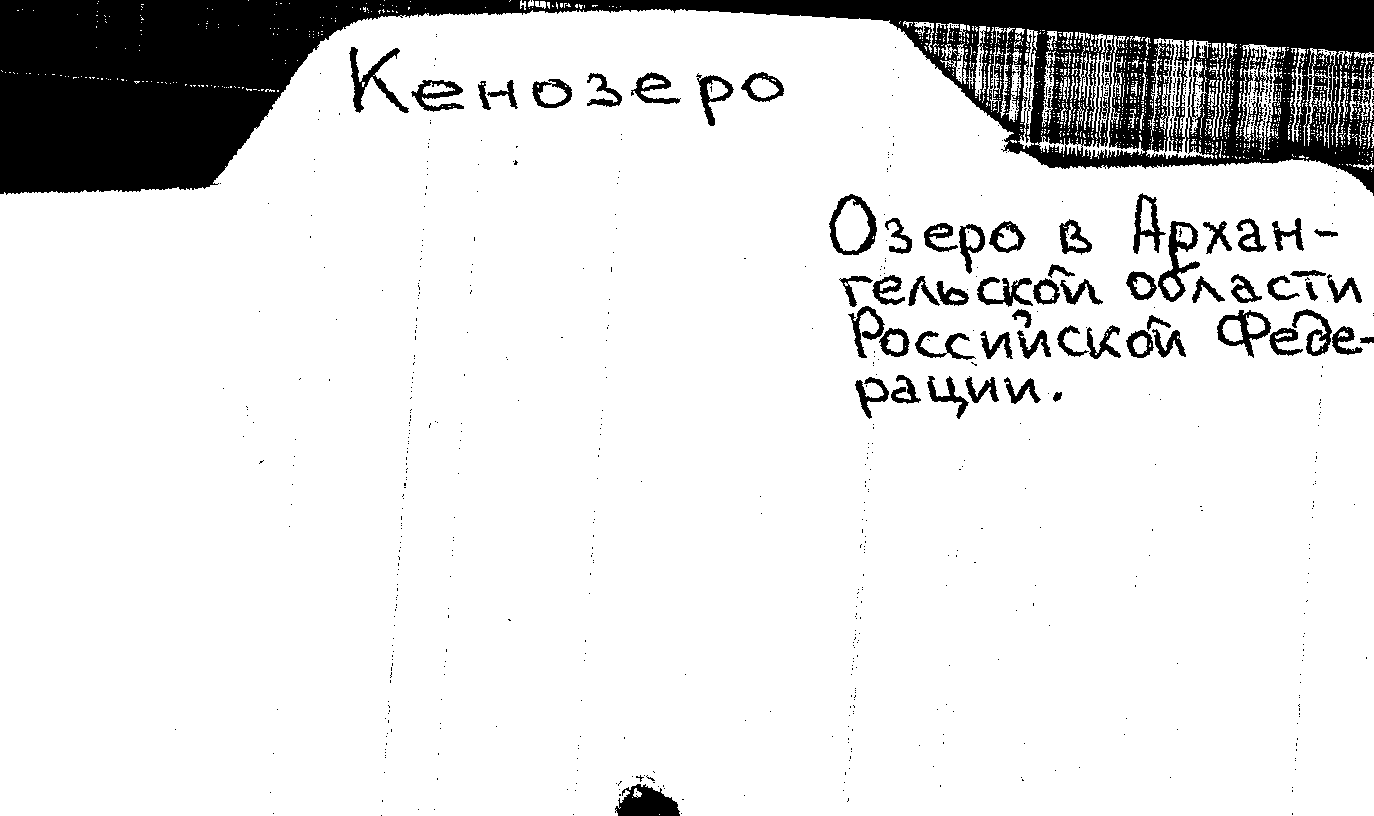 Кенозеро
Озеро в Архан-
гельской области
Российской Феде-
рации.